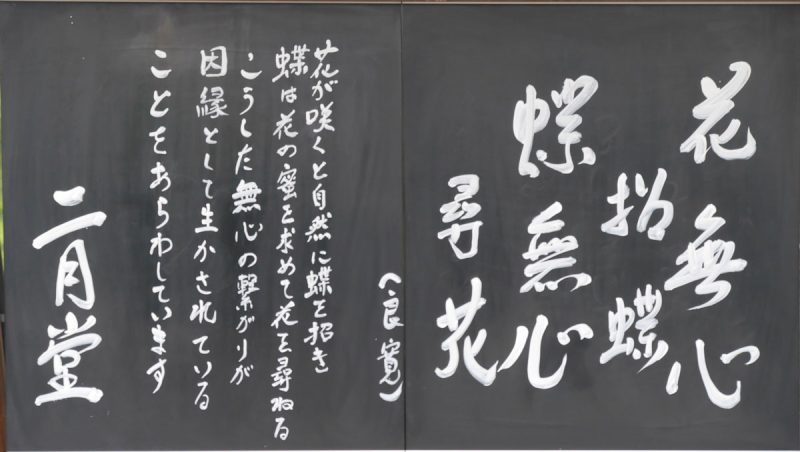 花無心
招蝶
蝶無心
尋花
(良寛)
花が咲くと自然に蝶を招き
蝶は花の蜜を求めて花を尋ねる
こうした無心の繋がりが
因縁として生かされている
ことをあらわしています
二月堂